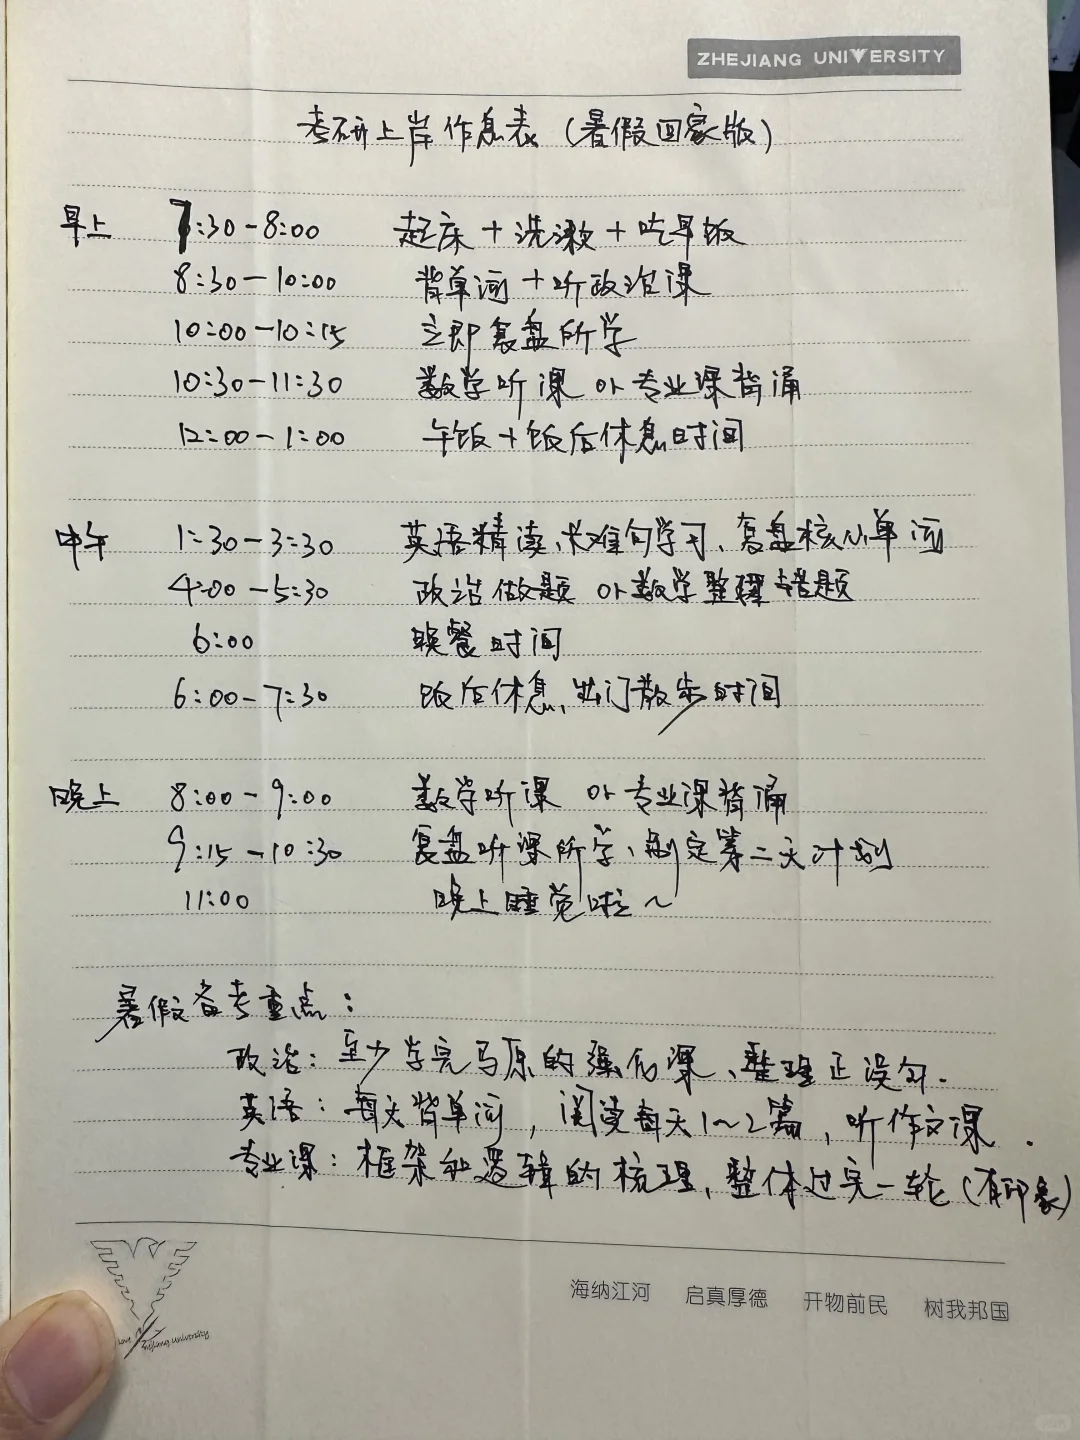 ZHEJIANG UNIVERSITY
考研上岸作息表（暑假回家版）
早上 7:30-8:00 起床+洗漱+吃早饭
8:30-10:00 背单词+听政治课
10:00-10:15 立即复盘所学
10:30-11:30 数学听课 or 专业课背诵
12:00-1:00 午饭+饭后休息时间
中午 1:30-3:30 英语精读、长难句学习、复盘核心单词
4:00-5:30 政治做题 or 数学整理错题
6:00 晚餐时间
6:00-7:30 饭后休息、出门散步时间
晚上 8:00-9:00 数学听课 or 专业课背诵
9:15-10:30 复盘听课所学、制定第二天计划
11:00 晚上睡觉啦~
暑假备考重点：
政治：至少学完马原的强化课、整理正误句.
英语：每天背单词，阅读每天1~2篇，听作文课.
专业课：框架和逻辑的梳理，整体过完一轮（有印象）
海纳江河 启真厚德 开物前民 树我邦国
Zhejiang University